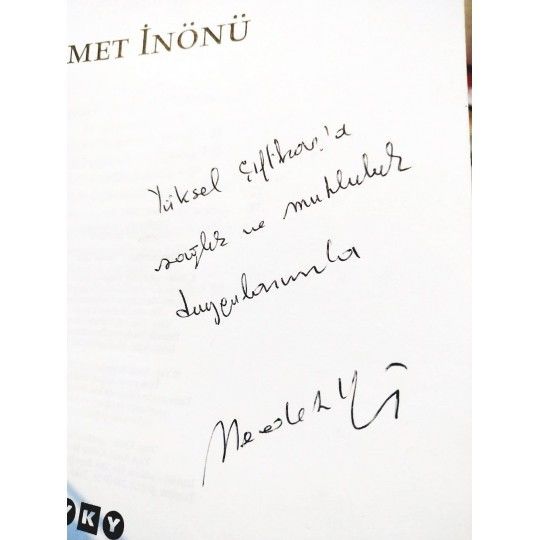 MET İNÖNÜ
Yüksel Çiftlikci'a
sağlık ve mutluluk
duygularımla
YKY